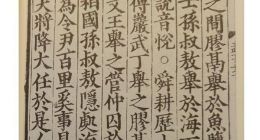 之間膠鬲舉於魚鹽
士孫叔敖舉於海
說音悅○舜耕歷
傅巖武丁舉之膠
文王舉之管仲囚於
相國孫叔敖隱處海
為令尹百里奚事見
天將降大任於是人